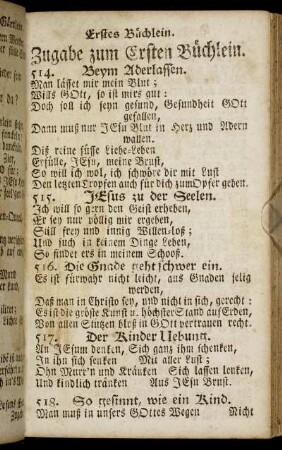 Erstes Büchlein.
Zugabe zum Ersten Büchlein.
514. Beym Aderlassen.
Man lässet mir mein Blut;
Wills GOtt, so ist mirs gut:
Doch soll ich seyn gesund, Gesundheit GOtt
gefallen,
Dann muß nur JEsu Blut in Herz und Adern
wallen.
Diß reine süsse Liebe-Leben
Erfülle, JEsu, meine Brust,
So will ich wol, ich schwöre dir mit Lust
Den letzten Tropfen auch für dich zum Opfer geben.
515. JEsus zu der Seelen.
Ich will so gern den Geist erheben,
Er sey nur völlig mir ergeben,
Still frey und innig Willen-loß;
Und such in keinem Dinge Leben,
So findet ers in meinem Schooß.
516. Die Gnade geht schwer ein.
Es ist fürwahr nicht leicht, aus Gnaden selig
werden,
Daß man in Christo sey, und nicht in sich, gerecht:
Es ist die gröste Kunst u. höchster Stand auf Erden,
Von allen Stützen bloß in GOtt vertrauen recht.
517. Der Kinder Uebung.
An JEsum denken, Sich ganz ihm schenken,
In ihn sich senken Mit aller Lust;
Ohn Murr'n und Kränken Sich lassen lenken,
Und kindlich tränken Aus JEsu Brust.
518. So gesinnt, wie ein Kind.
Man muß in unsers GOttes Wegen Nicht